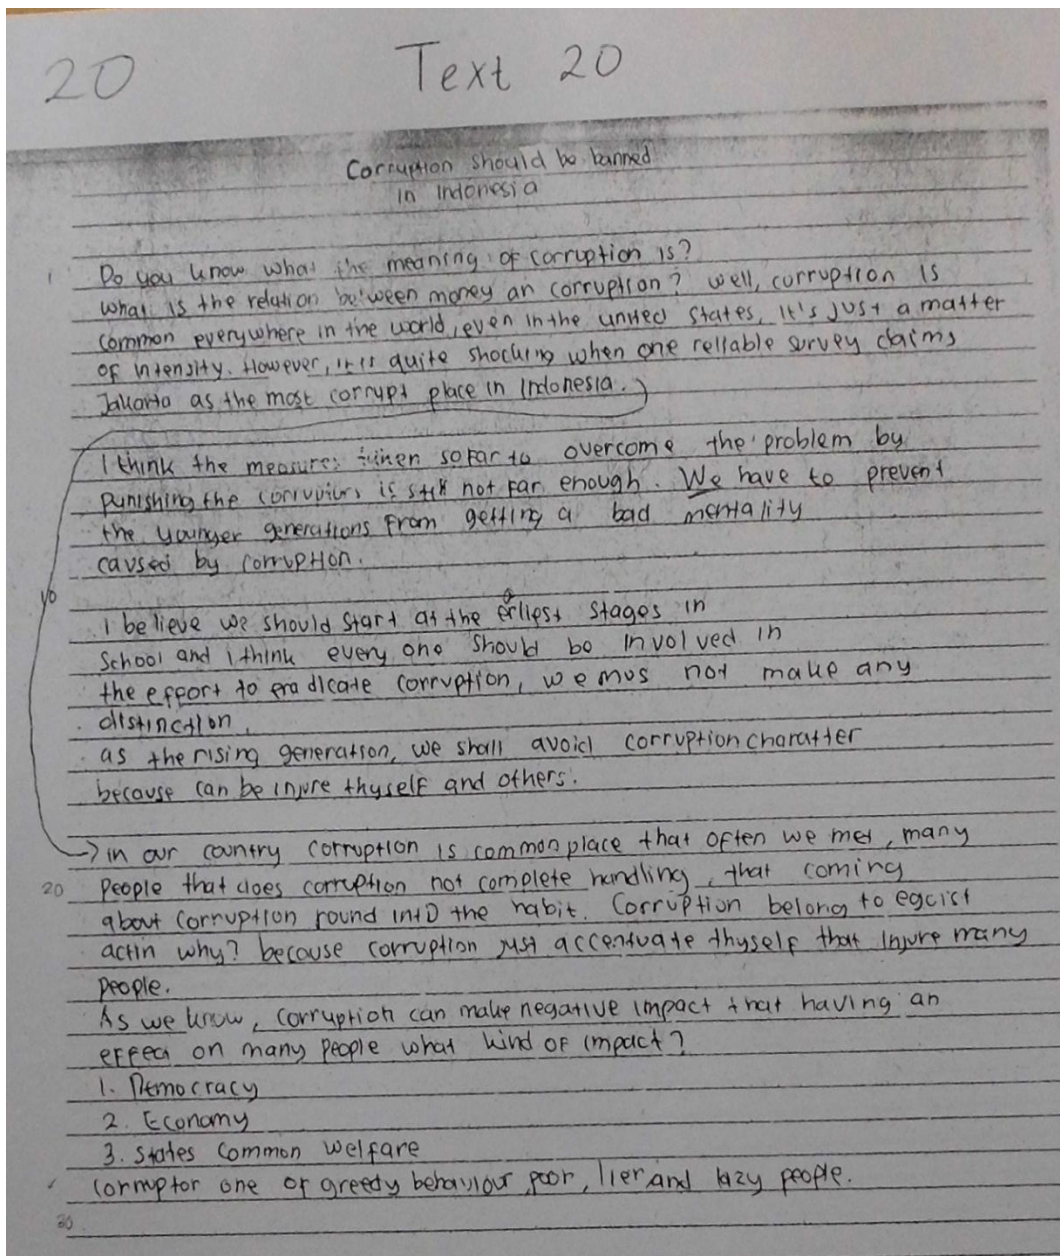 20
Text 20
Corruption should be banned
in Indonesia
1 Do you know what the meaning of corruption is?
what is the relation between money an corruption? well, corruption is
common everywhere in the world, even in the united states, it's just a matter
of intensity. However, it is quite shocking when one reliable survey claims
Jakarta as the most corrupt place in Indonesia.
I think the measures so far to overcome the problem by
punishing the corruptors is still not far enough. We have to prevent
the younger generations from getting a bad mentality
caused by corruption.
10
I believe we should start at the erliest stages in
School and i think every one should be involved in
the effort to eradicate corruption, we mus not make any
distinction,
as the rising generation, we shall avoid corruption charatter
because can be injure thyself and others.
in our country corruption is commonplace that often we met, many
20 people that does corruption not complete handling, that coming
about corruption round into the habit. Corruption belong to egoist
actin why? because corruption just accentuate thyself that injure many
people.
As we know, corruption can make negative impact that having an
effect on many people what kind of impact?
1. Democracy
2. Economy
3. States Common welfare
Corruptor one of greedy behaviour, poor, lier and lazy people.
30